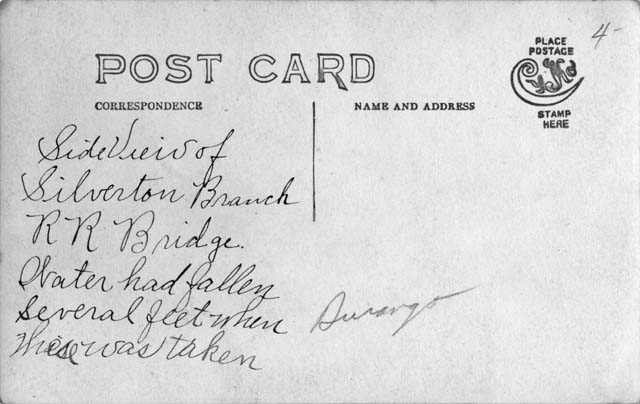 4-
PLACE
POSTAGE
CYKO
STAMP
HERE
POST CARD
CORRESPONDENCE
NAME AND ADDRESS
Side View of
Silverton Branch
R R Bridge.
Water had fallen
several feet when
this was taken
Durango